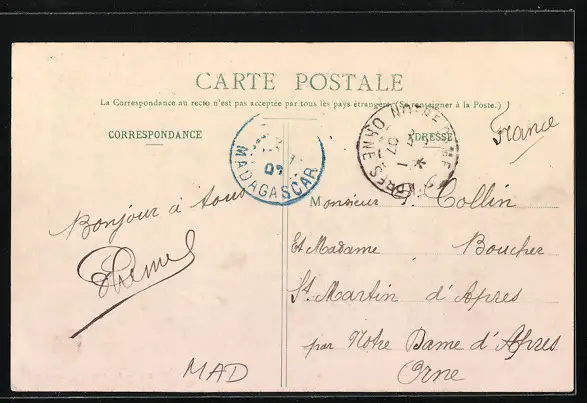 CARTE POSTALE
La Correspondance au recto n'est pas acceptée par tous les pays étrangers (Se renseigner à la Poste.)
CORRESPONDANCE
ADRESSE
France
MADAGASCAR
07
ORNE
07
Bonjour à tous
Monsieur Collin
Et Madame Boucher
St Martin d'Apres
par Notre Dame d'Apres
Orne
MAD